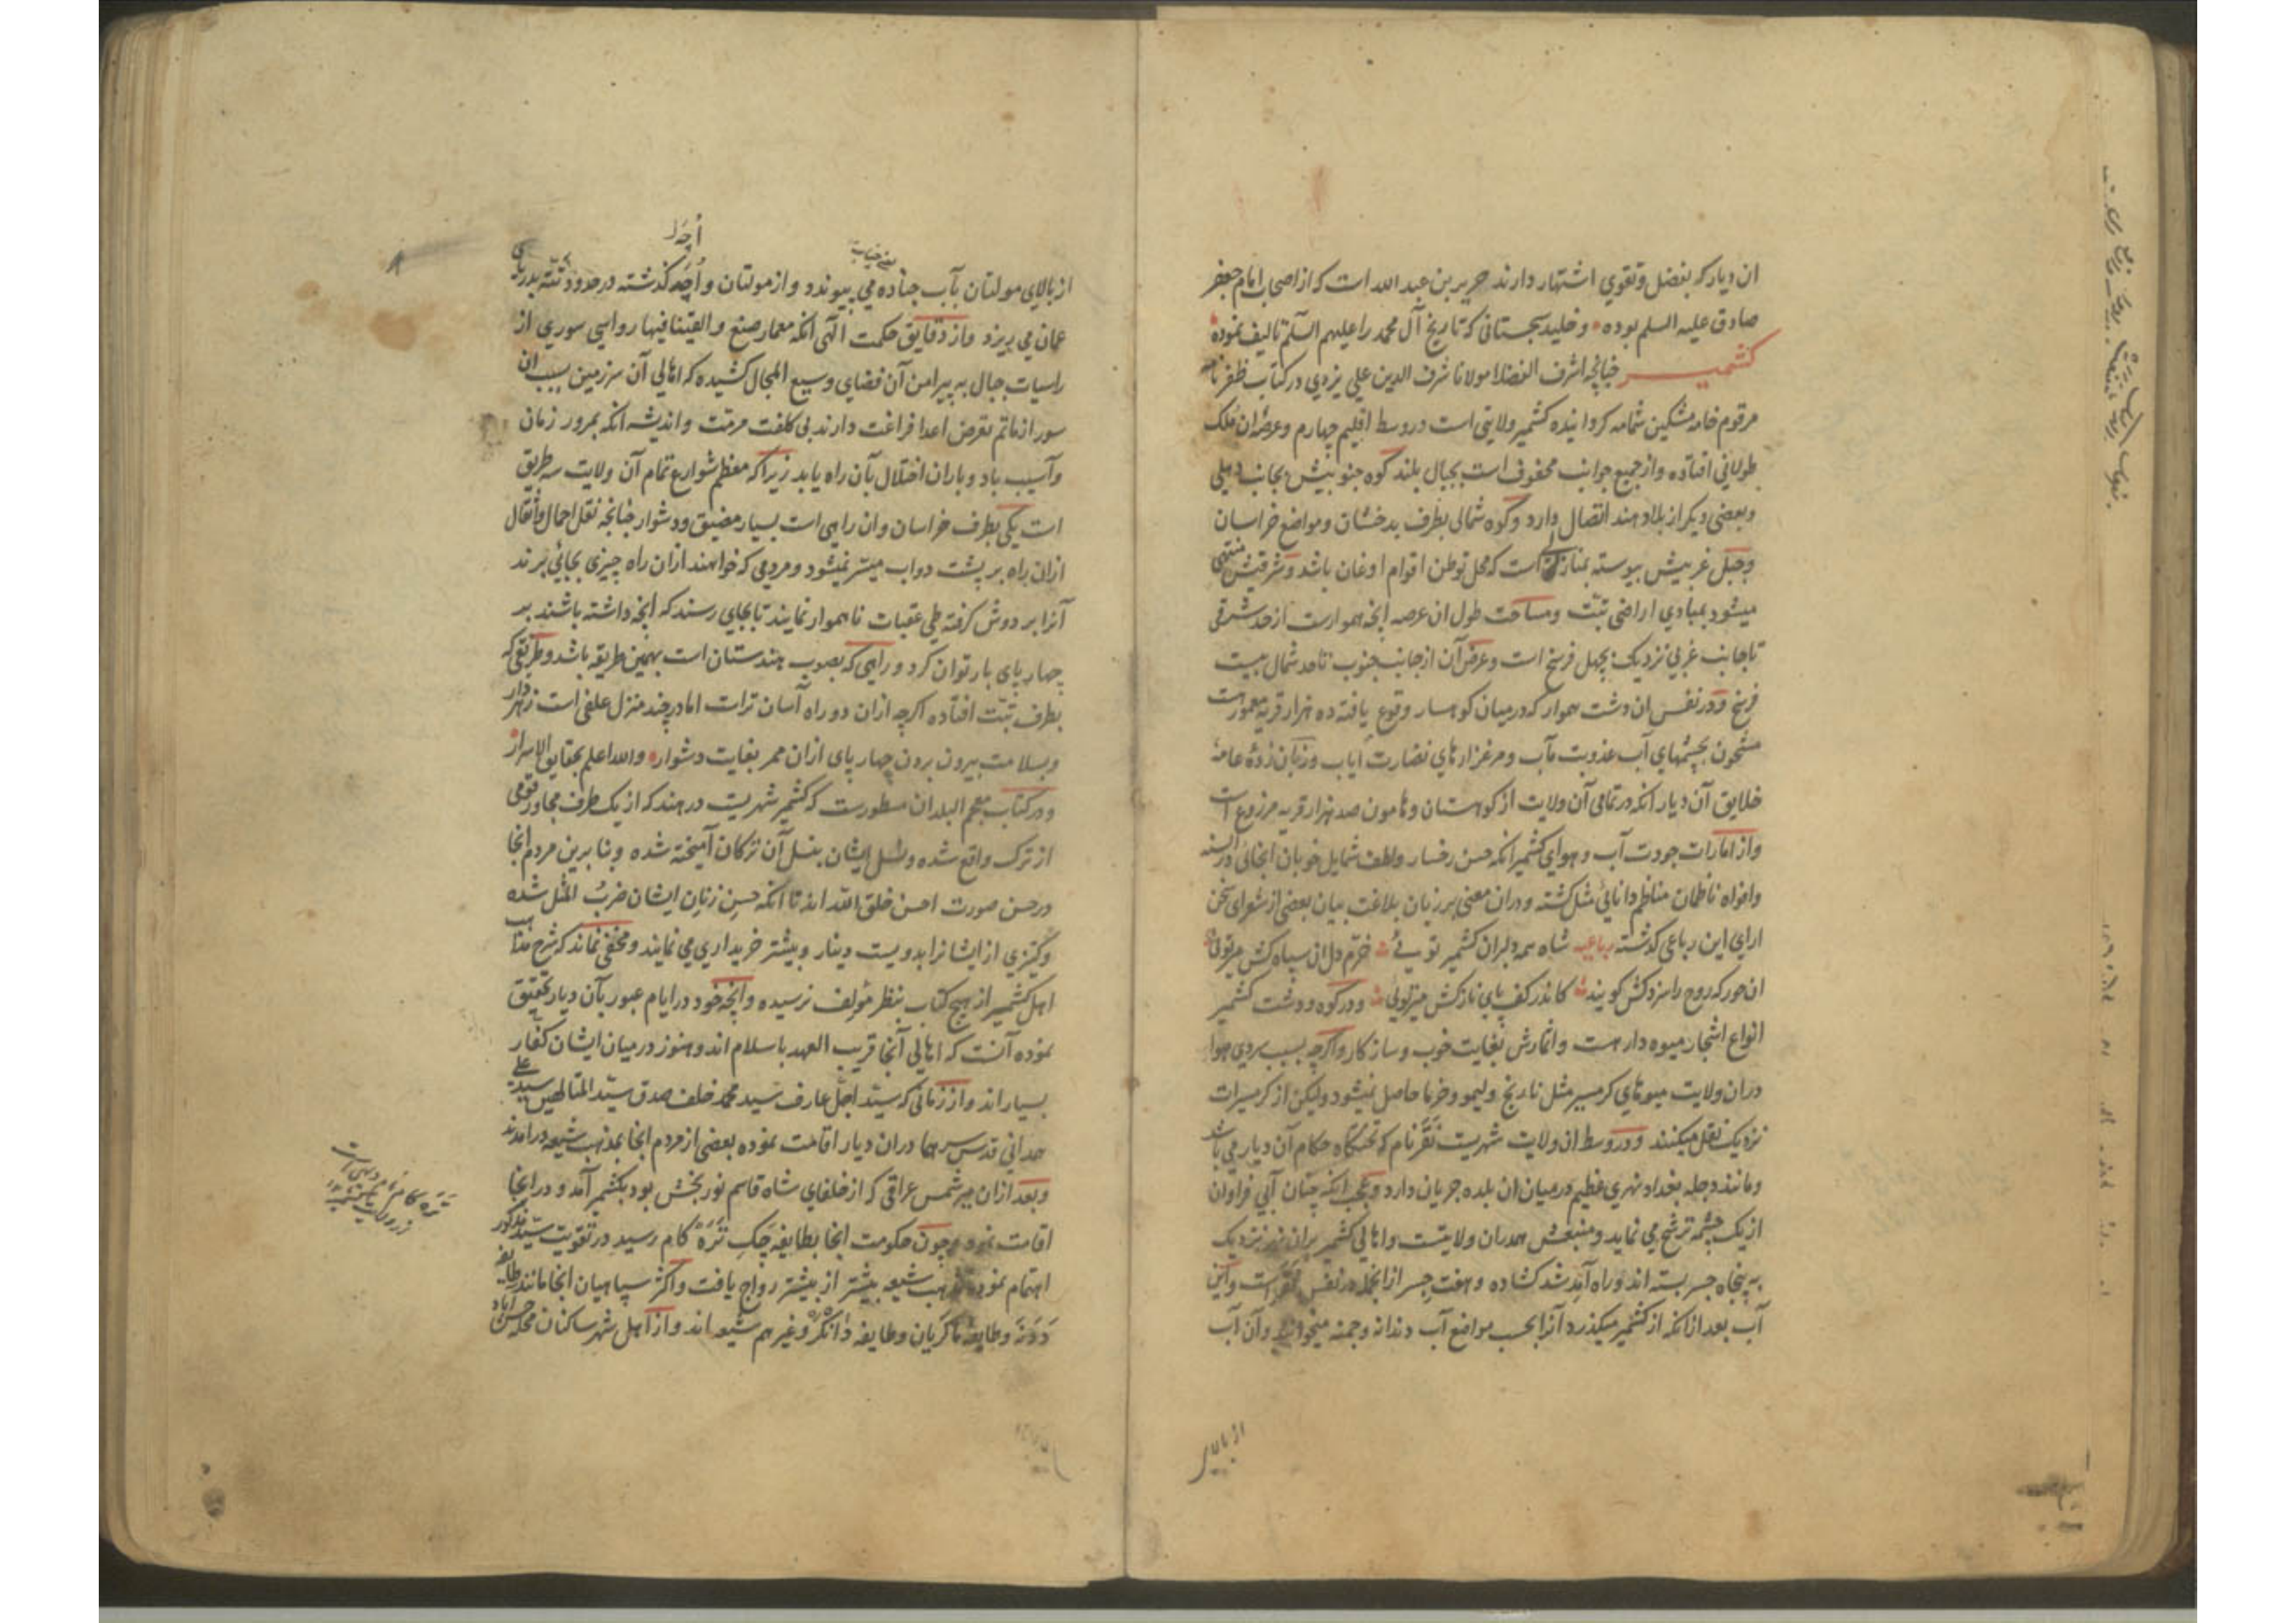 ان دیار که بفضل و تقوی اشتهار دارند حریر بن عبد الله است که از اصحاب امام جعفر
صادق علیه السلم بوده و خلید سجستانی که تاریخ آل محمد را علیهم السلم تالیف نموده
کشمیر چنانچه اشرف الفضلا مولانا شرف الدین علی یزدی در کتاب ظفرنامه
مرقوم خامه مشکین شمامه کردانیده کشمیر ولایتی است در وسط اقلیم چهارم و عرصه ان ملک
طولانی افتاده و از جمیع جوانب محفوف است بجبال بلند کوه جنوبیش بجانب دهلی
و بعضی دیکر از بلاد هند اتصال دارد و کوه شمالی بطرف بدخشان و مواضع خراسان
و جبل غربیش پیوسته بمنازلی است که محل توطن اقوام اوغان باشد و شرقیش منتهی
میشود بمبادی اراضی تبت و مساحت طول ان عرصه انچه هموارست از حد شرقی
تا جانب غربی نزدیک بچهل فرسخ است و عرض آن از جانب جنوب تا حد شمال بیست
فرسخ و در نفس ان دشت هموار که در میان کوهسار وقوع یافته ده هزار قریه معمورست
مشحون بچشمهای آب عذوبت مآب و مرغزارهای نضارت ایاب و زبان زده عامه
خلایق آن دیار انکه در تمامی آن ولایت از کوهستان و هامون صد هزار قریه مزروع است
و از امارات جودت آب و هوای کشمیر انکه حسن رخسار و لطف شمایل خوبان انجائی در السنه
و افواه ناظمان مناظم دانائی مثل کشته و دران معنی بر زبان بلاغت بیان بعضی از شعرای سخن
ارای این رباعی کذشته رباعیه شاه همه دلبران کشمیر تویی خرم دل ان سپاه کش میر تویی
ان حور که روح را سزد کش کویند کاندر کف پای نازکش میر تویی و در کوه و دشت کشمیر
انواع اشجار میوه دار هست و اثمارش بغایت خوب و سازکار و اکرچه بسبب سردی هوا
دران ولایت میوهای کرمسیر مثل نارنج و لیمو و خرما حاصل نمیشود ولیکن از کرمسیرات
نزدیک نقل میکنند و در وسط ان ولایت شهریست نغر نام که تختکاه حکام آن دیار می باشد
و مانند دجله بغداد نهری عظیم در میان ان بلده جریان دارد و عجب انکه چنان آبی فراوان
از یک چشمه ترشح می نماید و منبعش همدران ولایتست و اهالی کشمیر بران نهر نزدیک
به پنجاه جسر بسته اند و راه آمد شد کشاده و هفت جسر ازانجمله در نفس نغرست و این
آب بعد ازانکه از کشمیر میکذرد آنرا بحسب مواضع آب دندانه و جمنه میخوانند و آن آب
از بالای
اچه
یعنی چناب
از بالای مولتان بآب جناده می پیوندد و از مولتان و اچه کذشته در حدود تته بدریای
عمان می ریزد و از دقایق حکمت الهی انکه معمار صنع و القینا فیها رواسی سوری از
راسیات جبال به پیرامن آن فضای وسیع المجال کشیده که اهالی آن سرزمین بسبب ان
سور از ماتم تعرض اعدا فراغت دارند بی کلفت مرمت و اندیشه انکه بمرور زمان
و آسیب باد و باران اختلال بآن راه یابد زیرا که معظم شوارع تمام آن ولایت سه طریق
است یکی بطرف خراسان و ان راهی است بسیار مضیق و دشوار چنانچه نقل احمال و اثقال
ازان راه بر پشت دواب میسر نمیشود و مردمی که خواهند ازان راه چیزی بجائی برند
آنرا بر دوش کرفته طی عقبات ناهموار نمایند تا بجای رسند که انچه داشته باشند بر
چهار پای بار توان کرد و راهی که بصوب هندستان است بهمین طریقه باشد و طریقی که
بطرف تبت افتاده اکرچه ازان دو راه آسان تر است اما در چند منزل علفی است زهر دار
و بسلامت بیرون بردن چهار پای ازان ممر بغایت دشوار و الله اعلم بحقایق الاسرار
و در کتاب معجم البلدان مسطورست که کشمیر شهریست در هند که از یک طرف مجاور قومی
از ترک واقع شده و نسل ایشان بنسل آن ترکان آمیخته شده و بنابرین مردم انجا
در حسن صورت احسن خلق الله اند تا انکه حسن زنان ایشان ضرب المثل شده
و کنیزی از ایشانرا بدویست دینار و بیشتر خریداری می نمایند و مخفی نماند که شرح مذاهب
اهل کشمیر از هیچ کتاب بنظر مؤلف نرسیده و انچه خود در ایام عبور بآن دیار تحقیق
نموده آنست که اهالی آنجا قریب العهد باسلام اند و هنوز در میان ایشان کفار
بسیار اند و از زمانی که سید اجل عارف سید محمد خلف صدق سید المتالهین سید علی
همدانی قدس سرهما دران دیار اقامت نموده بعضی از مردم انجا بمذهب شیعه درامدند
و بعد ازان میر شمس عراقی که از خلفای شاه قاسم نور بخش بود بکشمیر آمد و در انجا
اقامت نمود و چون حکومت انجا بطایفه چک تره کام رسید در تقویت سید مذکور
اهتمام نمودند مذهب شیعه بیشتر از پیشتر رواج یافت و اکثر سپاهیان انجا مانند طایفه
ددنه و طایفه ماکریان و طایفه دانکر و غیرهم شیعه اند و از اهل شهر ساکنان محله حسن اباد
تره کام نام دهی است